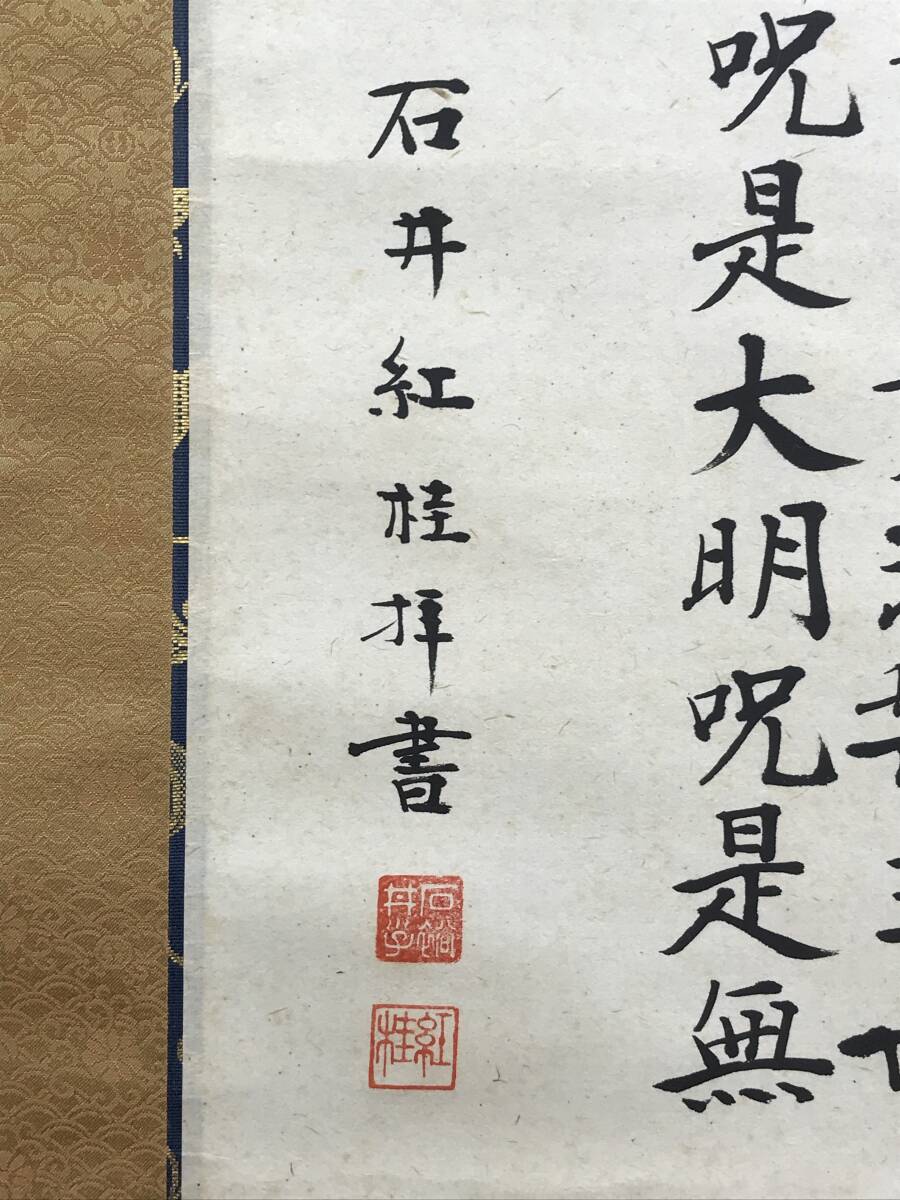 呪是大明呪是無
石井紅桂拝書
紅桂